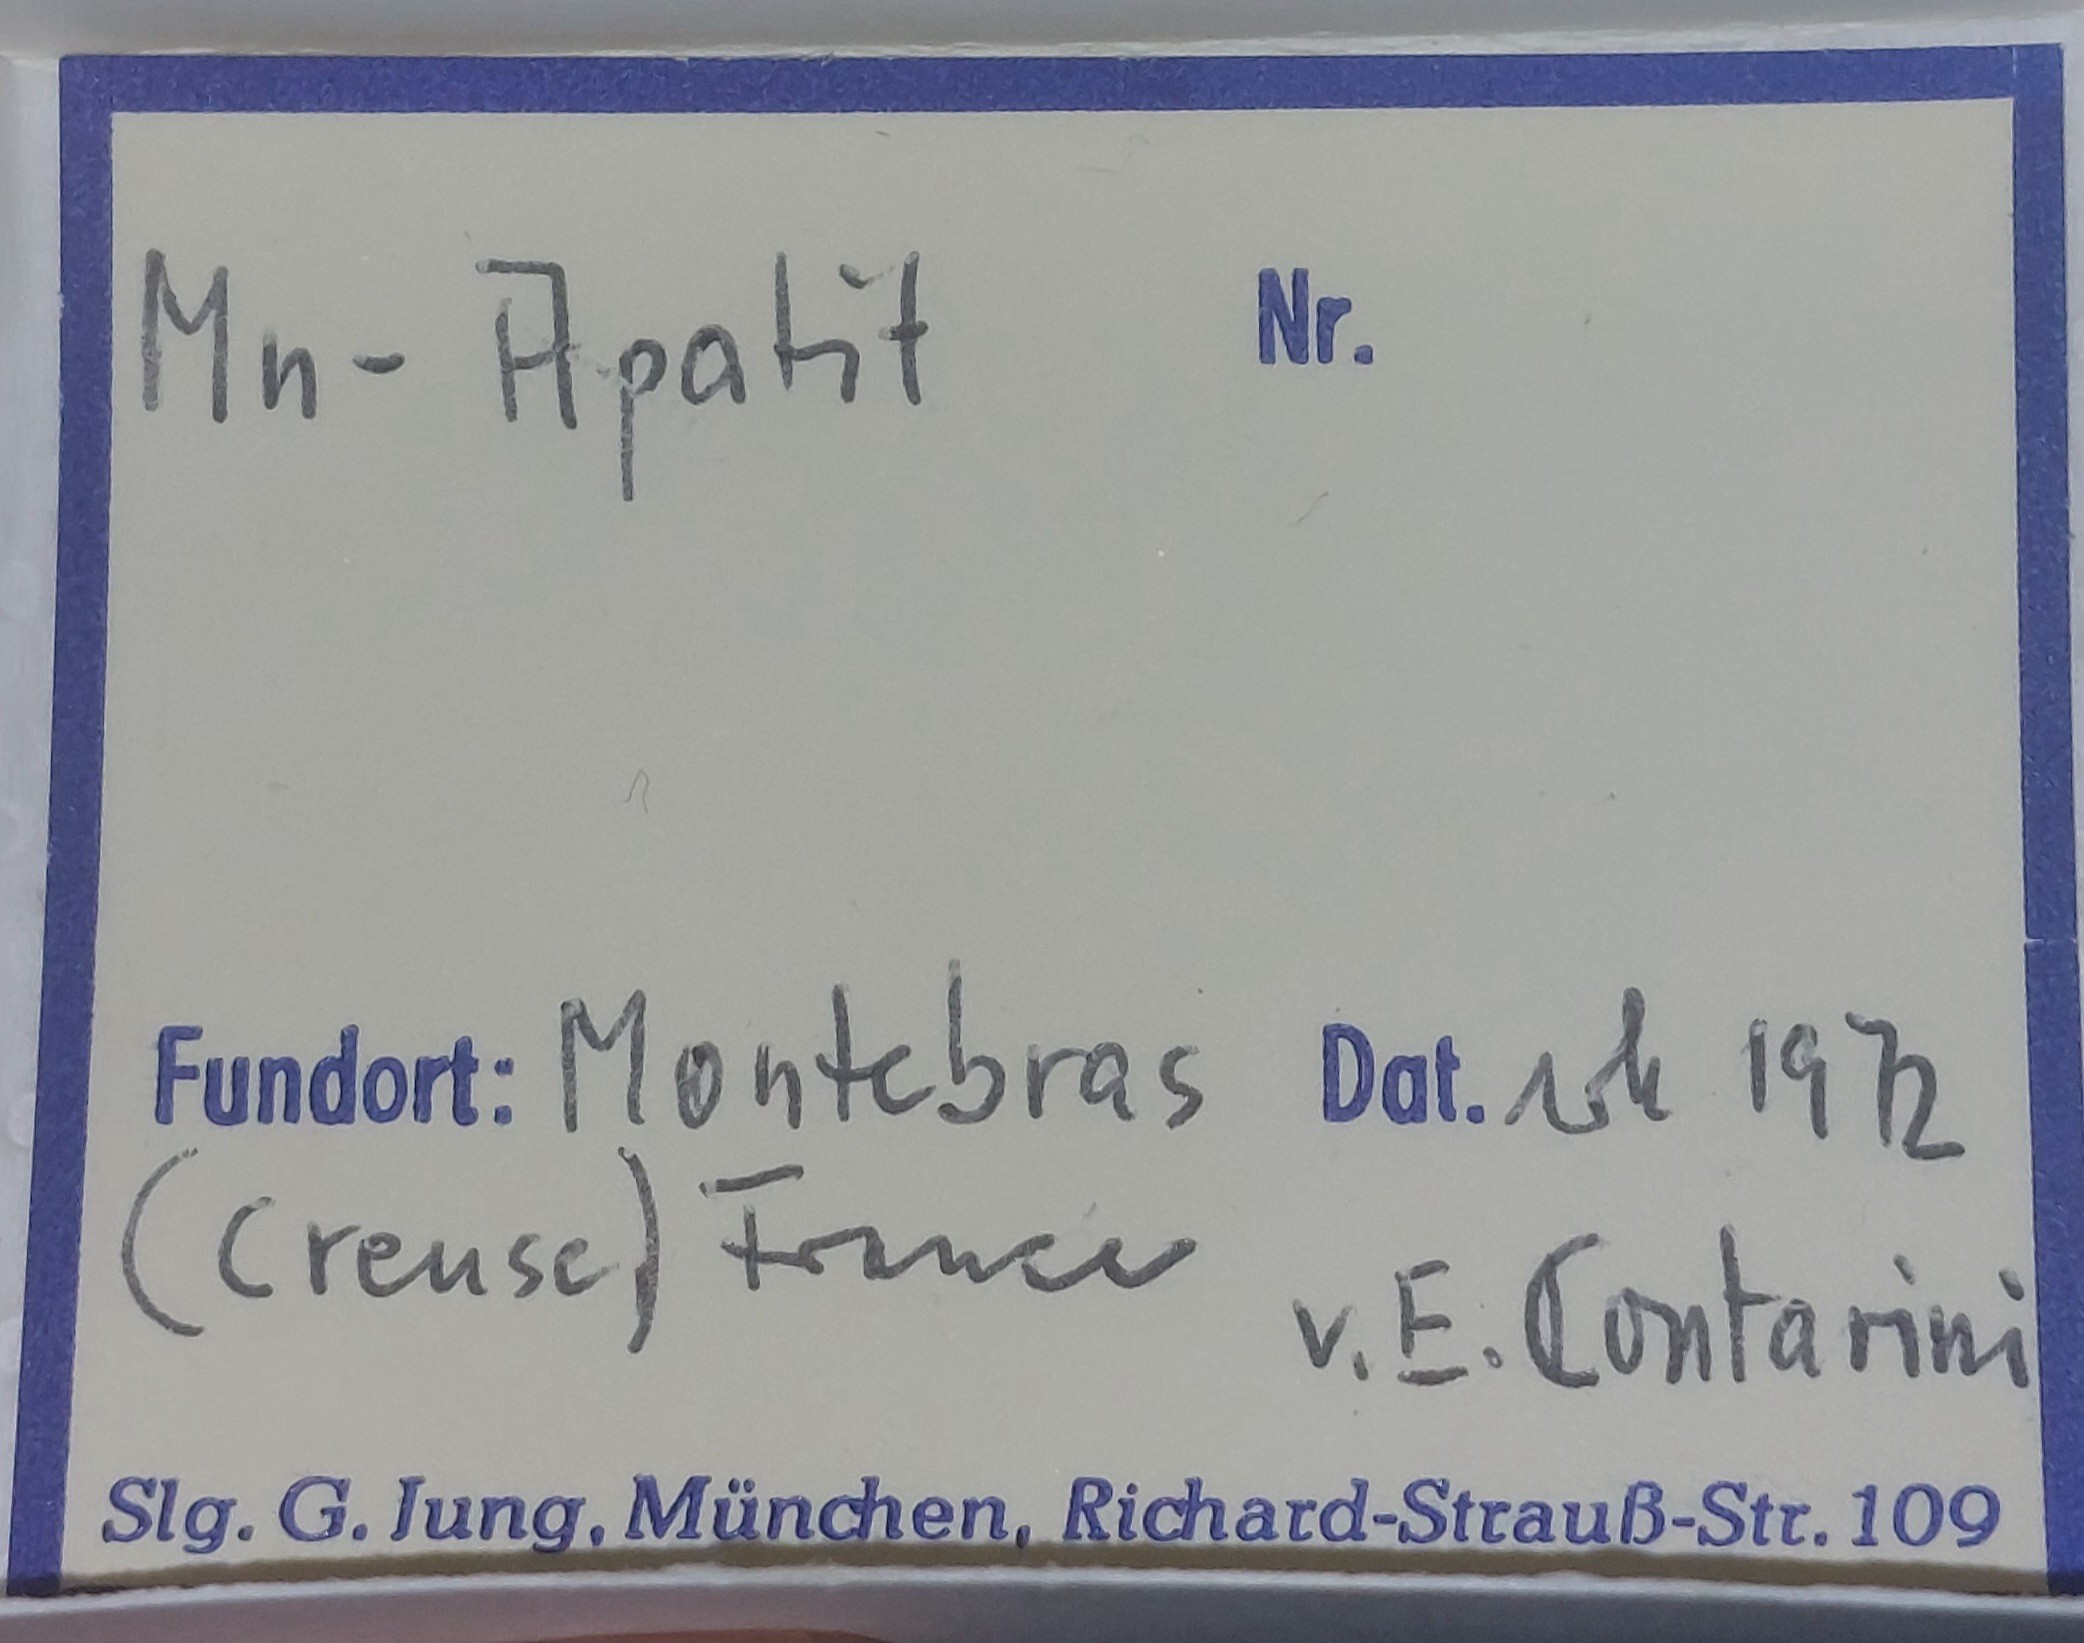 Mn-Apatit Nr.
Fundort: Montebras Dat. 1972
(Creuse) France v. E. Contarini
Slg. G. Jung, München, Richard-Strauß-Str. 109